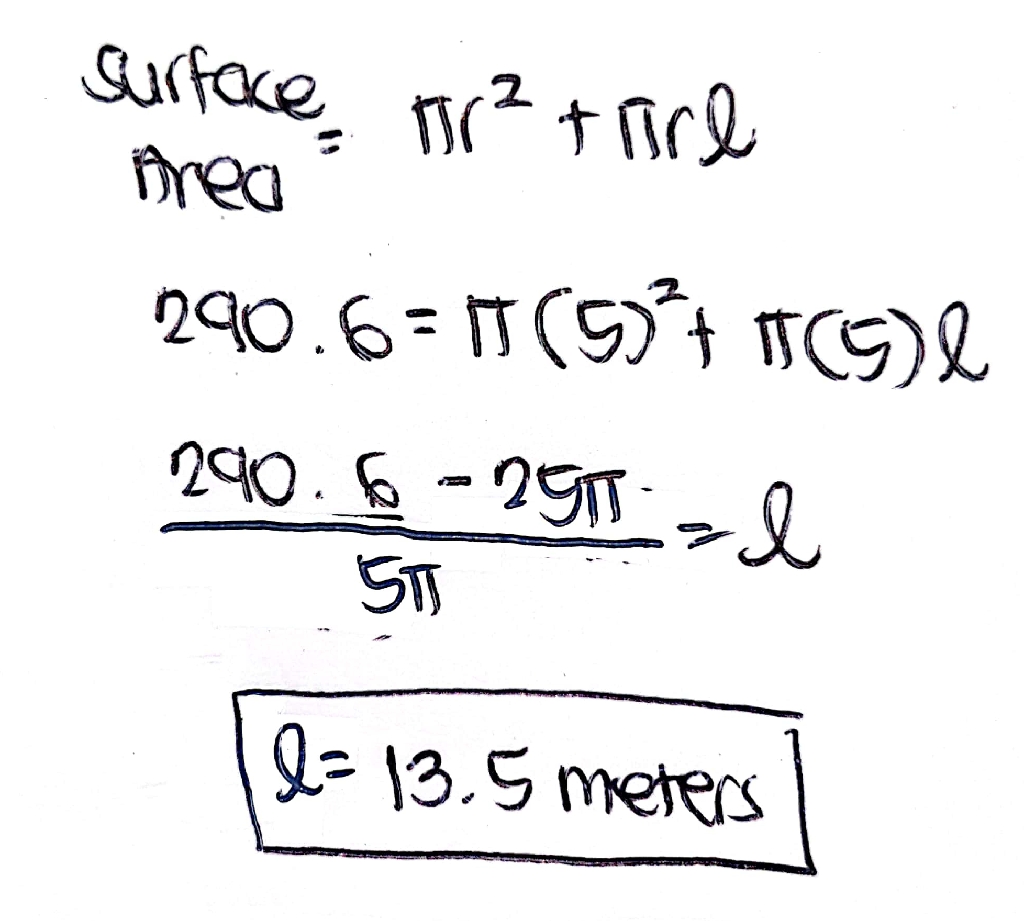 Surface Area = πr² + πrl
290.6 = π(5)² + π(5)l
290.6 - 25π / 5π = l
l = 13.5 meters